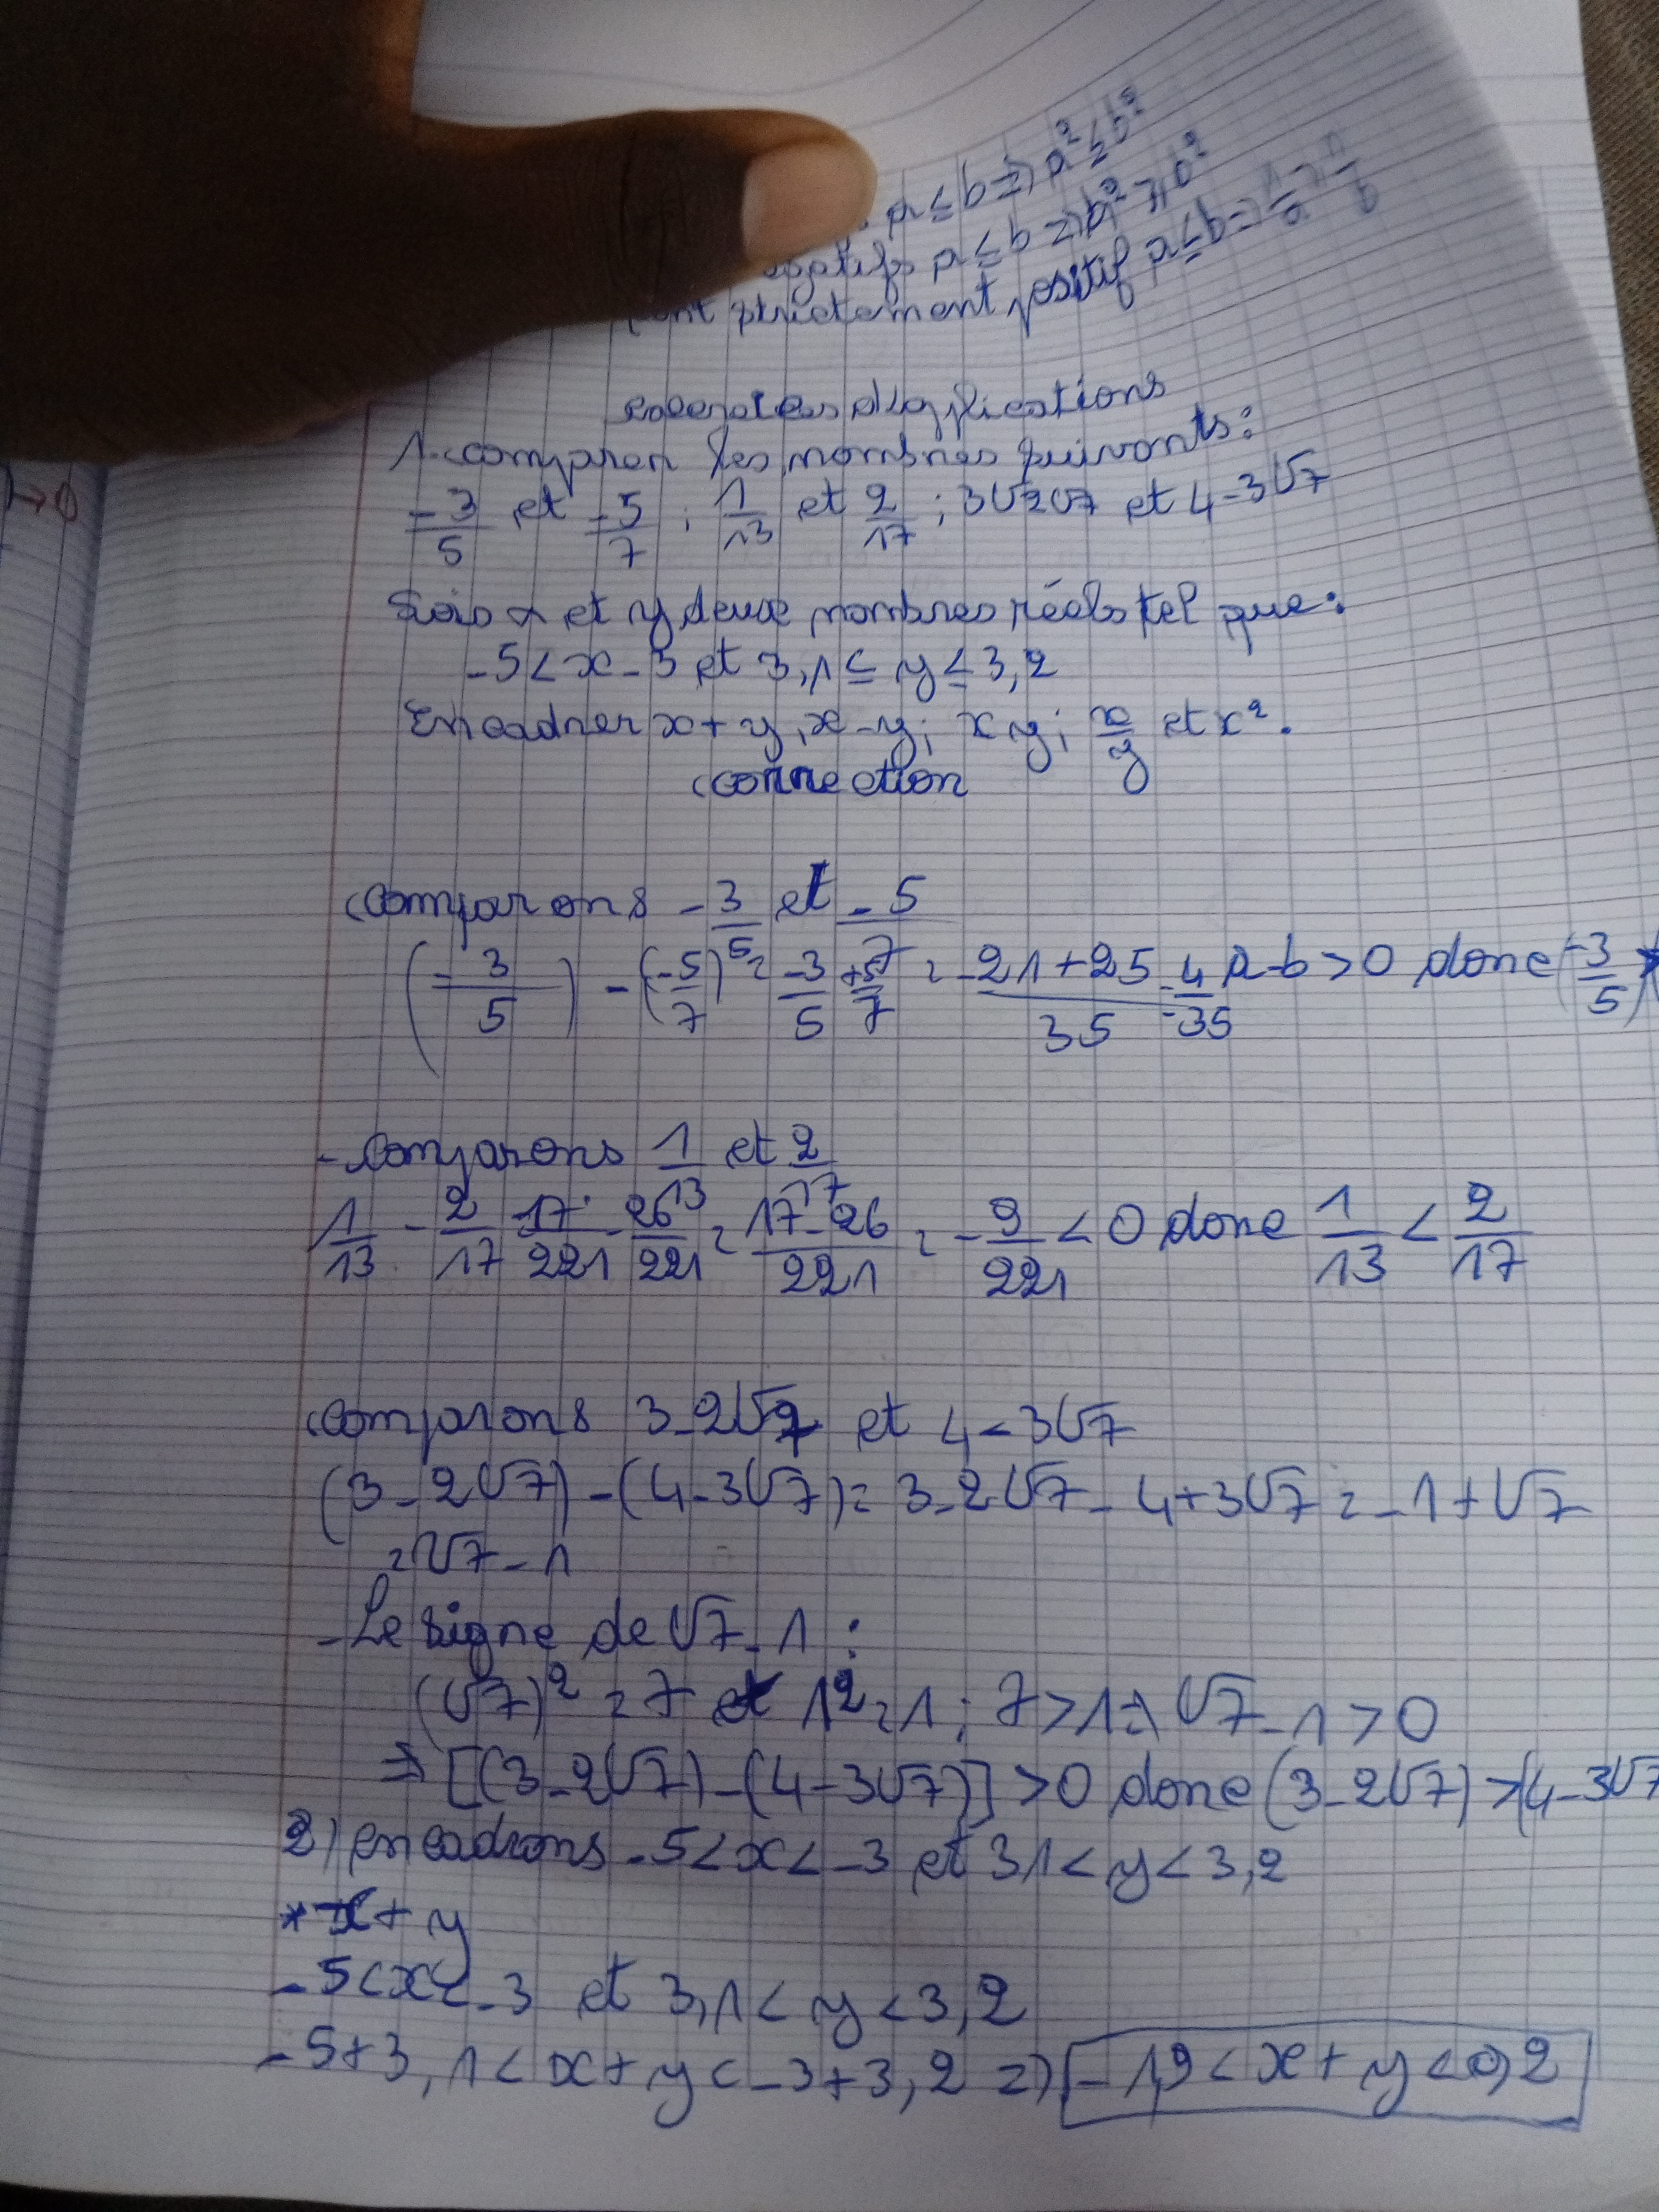 a ≤ b => a² ≤ b²
a ≤ b => a² ≥ b²
strictement positif a ≤ b => 1/a ≥ 1/b
d'applications
1-comparer les nombres suivants:
-3/5 et -5/7 ; 1/13 et 2/17 ; 3√2√7 et 4-3√7
Sois x et y deux nombres réels tel que:
-5<x-3 et 3,1 ≤ y ≤ 3,2
Encadrer x+y, x-y; xy; x/y et x².
correction
Comparons -3/5 et -5/7
(-3/5) -(-5/7) = -3/5 +5/7 = -21+25/35 = 4/35 a-b>0 donc (-3/5)
-Comparons 1/13 et 2/17
1/13 - 2/17 = 17/221 - 26/221 = 17-26/221 = -9/221 < 0 donc 1/13 < 2/17
Comparons 3-2√7 et 4-3√7
(3-2√7)-(4-3√7) = 3-2√7-4+3√7 = -1+√7
= √7-1
-Le signe de √7-1 :
(√7)² = 7 et 1² = 1 ; 7>1 => √7-1>0
=> [(3-2√7)-(4-3√7)] >0 donc (3-2√7) >(4-3√7
2) encadrons -5<x<-3 et 3,1<y<3,2
* x+y
-5<x<-3 et 3,1<y<3,2
-5+3,1<x+y<-3+3,2 => -1,9<x+y<0,2